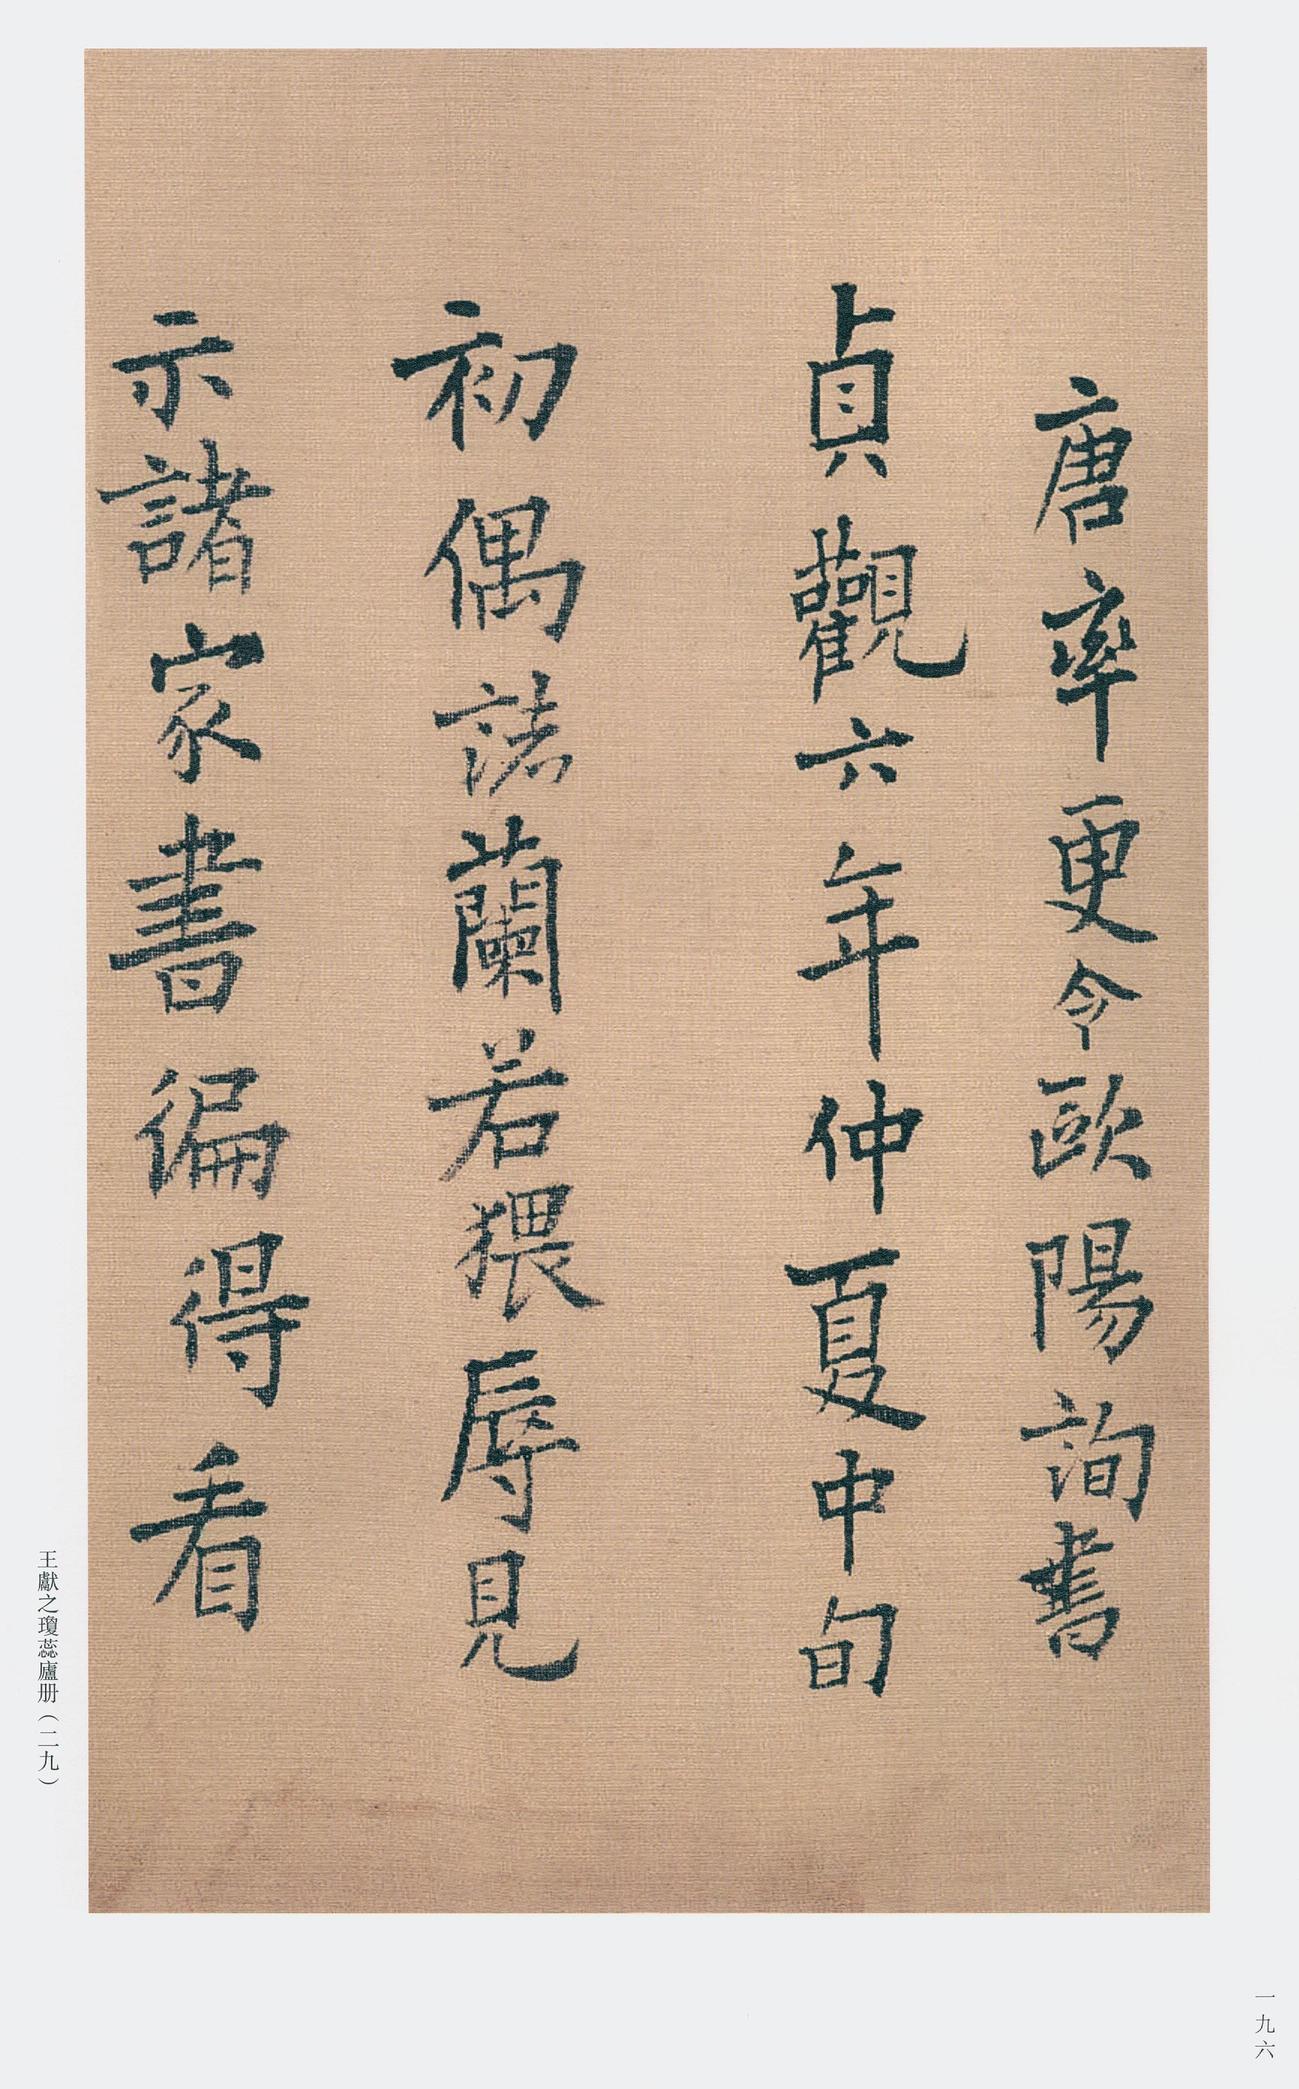 唐率更令歐陽詢書
貞觀六年仲夏中旬
初偶誌蘭若猥辱見
示諸家書徧得看
王獻之瓊蕊廬册（二九）
一九六